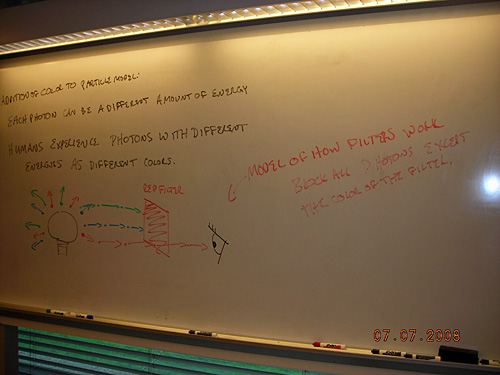 ADDITION OF COLOR TO PARTICLE MODEL:
EACH PHOTON CAN BE A DIFFERENT AMOUNT OF ENERGY
HUMANS EXPERIENCE PHOTONS WITH DIFFERENT
ENERGIES AS DIFFERENT COLORS.
MODEL OF HOW FILTERS WORK
BLOCK ALL PHOTONS EXCEPT
THE COLOR OF THE FILTER.
RED FILTER
07.07.2008